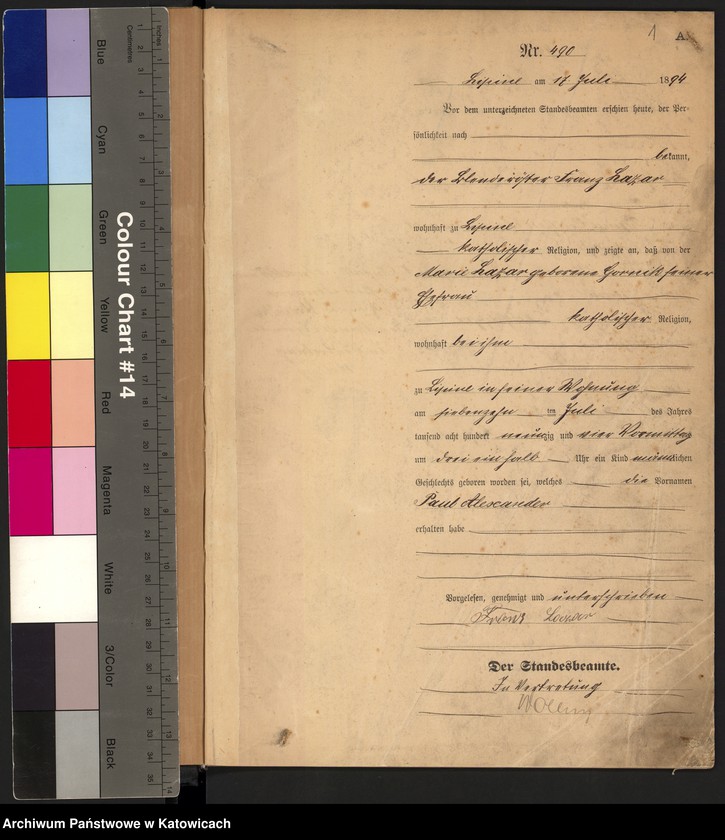 Blue
Cyan
Green
Yellow
Red
Magenta
White
3/Color
Black
Colour Chart #14
Centimetres
Inches
1 A.
Nr. 490
Lipine am 17 Juli 1894
Vor dem unterzeichneten Standesbeamten erschien heute, der Per-
sönlichkeit nach
bekannt,
der Blenderöster Franz Lazar
wohnhaft zu Lipine
katholischer Religion, und zeigte an, daß von der
Marie Lazar geborene Gornik seiner
Ehefrau
katholischer Religion,
wohnhaft bei ihm
zu Lipine in seiner Wohnung
am siebenzehn ten Juli des Jahres
tausend acht hundert neunzig und vier Vormittag
um drei ein halb Uhr ein Kind männlichen
Geschlechts geboren worden sei, welches die Vornamen
Paul Alexander
erhalten habe
Vorgelesen, genehmigt und unterschrieben
Franz Lazar
Der Standesbeamte.
In Vertretung
Archiwum Państwowe w Katowicach